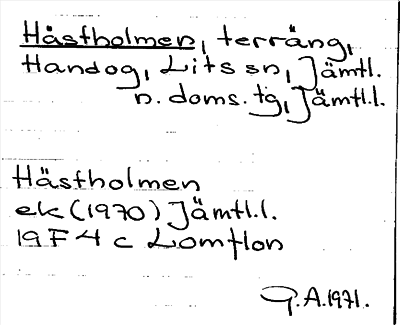 Hästholmen, terräng,
Handog, Lits sn, Jämtl.
n. doms. tg, Jämtl.l.
Hästholmen
ek (1970) Jämtl.l.
19 F 4 c Lomtlon
G.A. 1971.